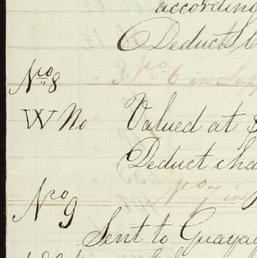 according
Deduct
No 8
No 6 in
W No Valued at $
Deduct cha
No 7 in
No 9
Sent to Guayaq